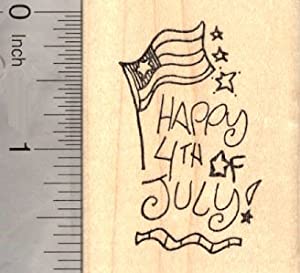 0
Inch
1
HAPPY
4TH OF
JULY!